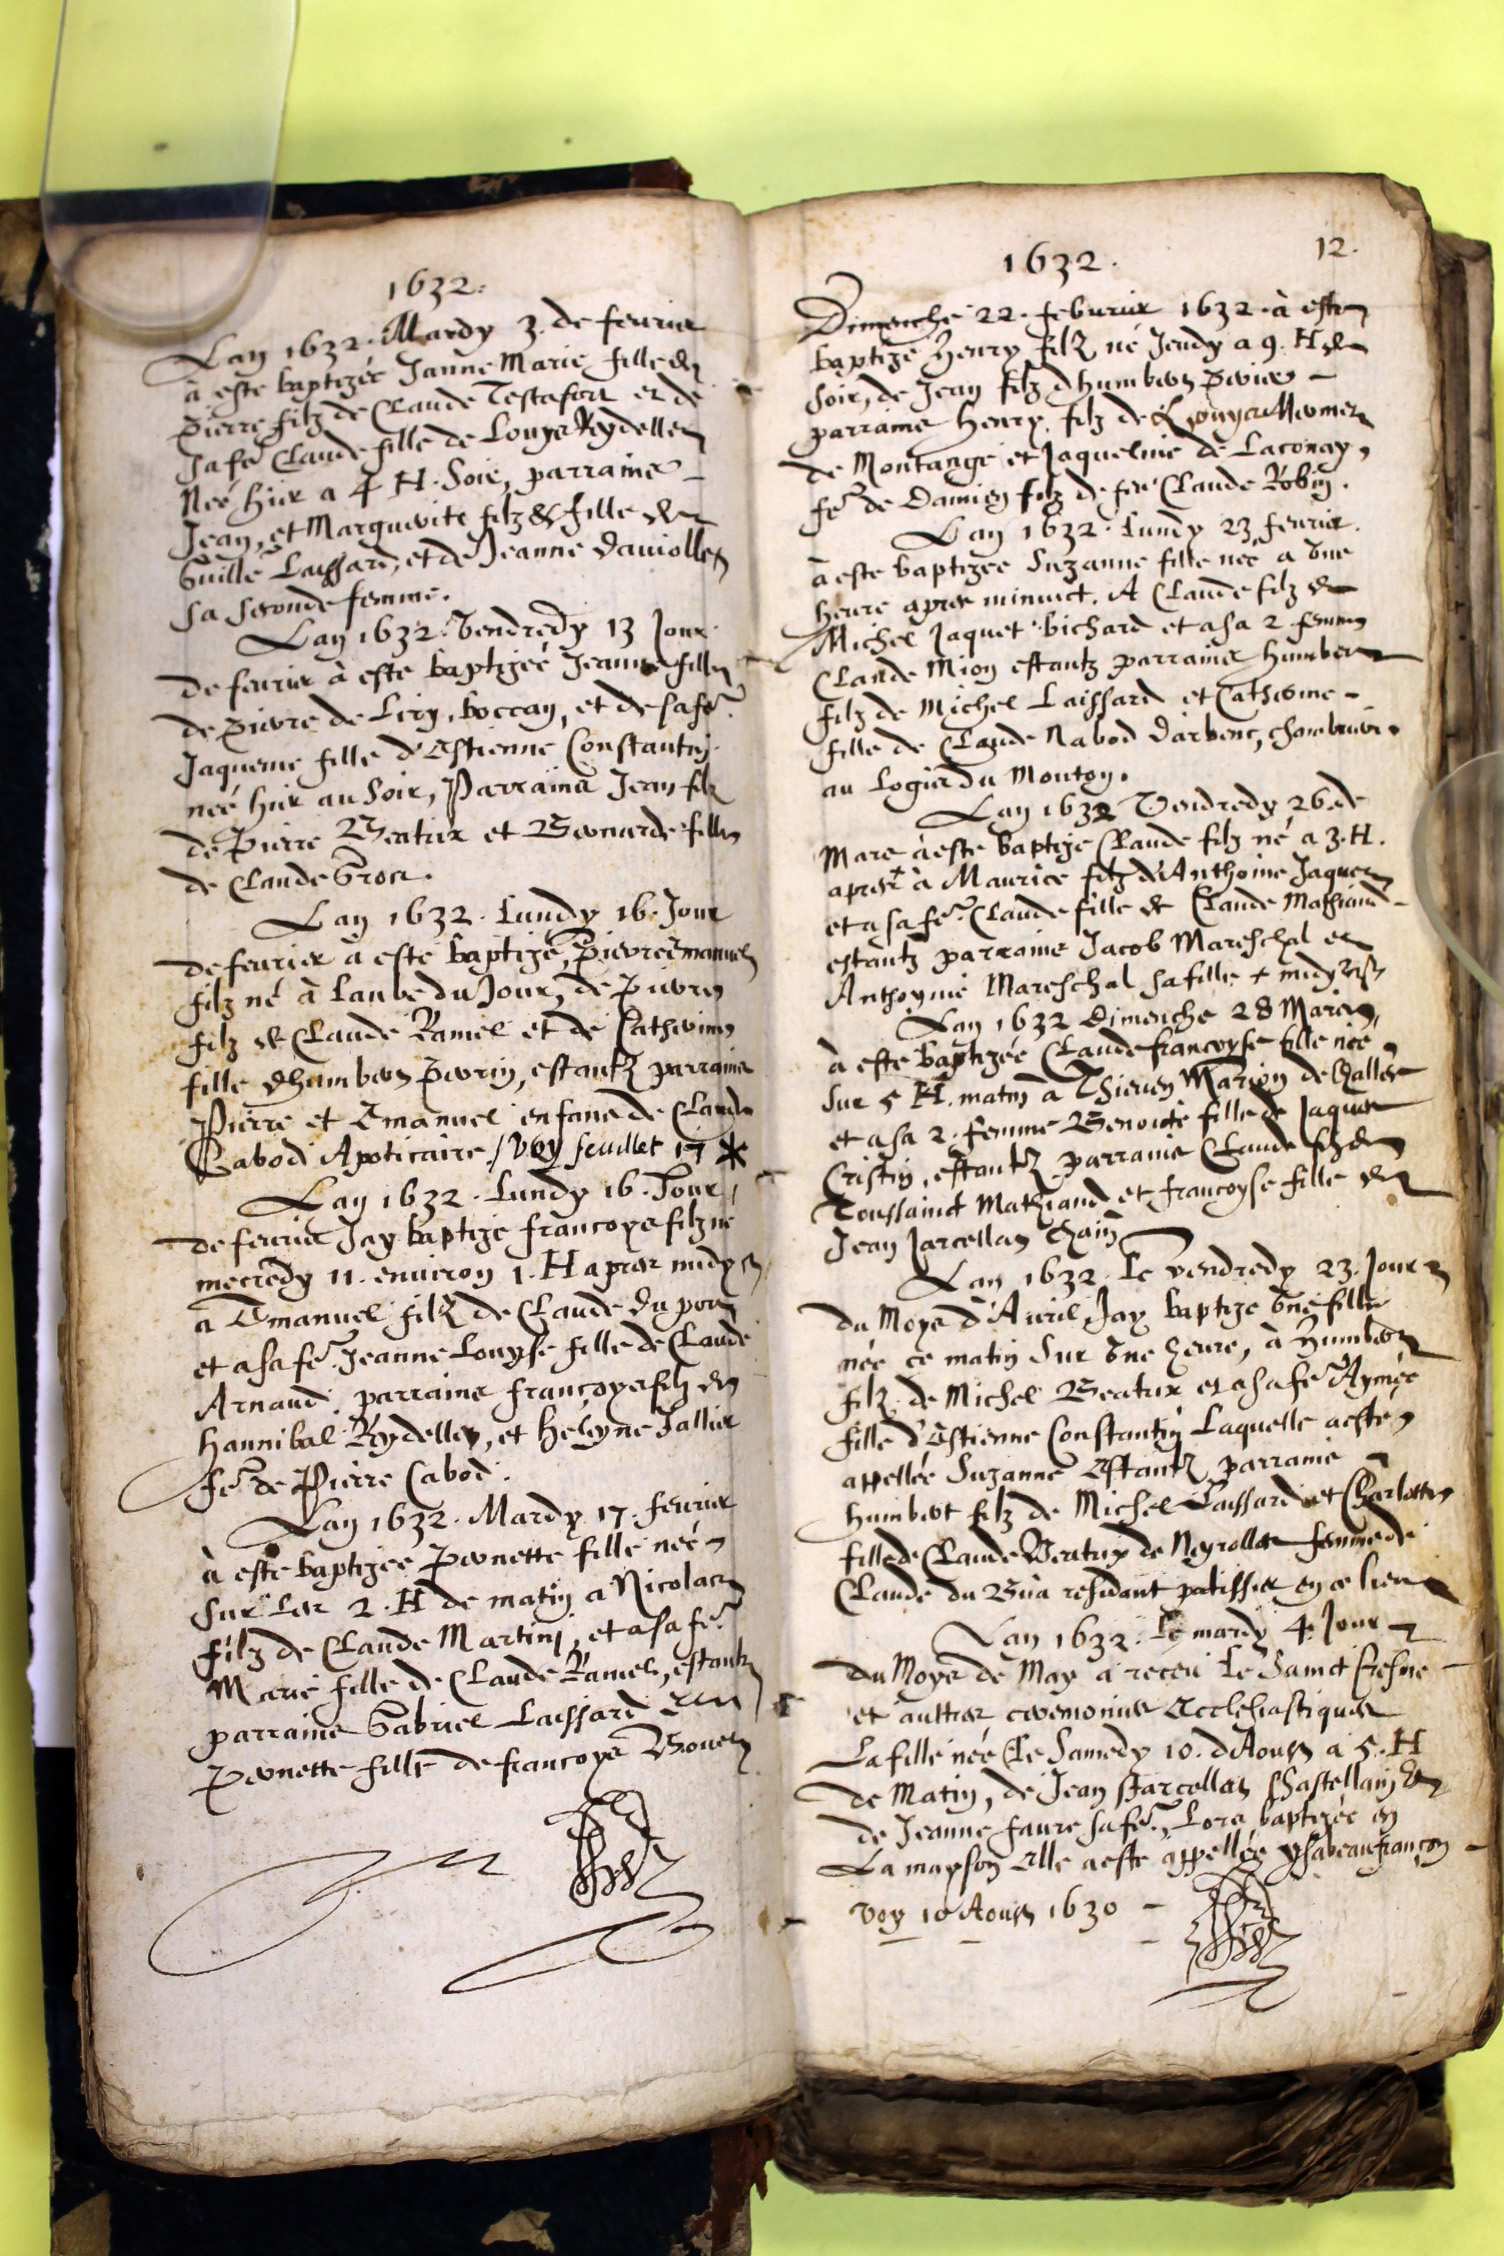 1632.
Lan 1632. Mardy 3. de feurier
à este baptizée Janne Marie fille de
Pierre filz de Claude Testafort et de
sa fe Claude fille de Louys Reydellet
Neé hier a 4 H. Soir, parrains
Jean, et Marguerite filz & fille de
Guille Laissard, et de Jeanne dauiolles
sa seconde femme.
Lan 1632. Vendredy 13 Jour
de feurier à este baptizeé Jeanne fille
de Pierre de Liry, boccan, et de sa fe.
Jaqueme fille d'Estienne Constantin
neé hier au Soir, Parrains Jean filz
de Pierre Beatrix et Bernarde fille
de Claude Gros.
Lan 1632. Lundy 16. Jour
de feurier à esté baptizé, Pierre Emanuel
filz né à Laube du Jour, de Pierre
filz de Claude Ramel et de Catherine
fille dhumbert Perrin, estantz parrains
Pierre et Emanuel enfans de Claude
Cabod Apoticaire / Voy feuillet 17 *
Lan 1632. Lundy 16. Jour
de feurier Jay baptizé francoys filz né
mecredy 11. enuiron 1. H apres midy
a Emanuel filz de Claude du port
et a sa fe. Jeanne Louyse fille de Claude
Arnaud. parrains francoys filz de
Hannibal Reydellet, et Heleyne Jallier
fe de Pierre Cabod.
Lan 1632. Mardy 17. feurier
à este baptizee Pernette fille neé
sur les 2. H de matin a Nicolas
filz de Claude Martin, et a sa fe.
Marie fille de Claude Ramel, estantz
parrains Gabriel Laissard et
Pernette fille de francoys Bouet
1632.
12.
Dimenche 22. feburier 1632. à este
baptizé Henry filz né Jeudy a 9. H de
soir, de Jean filz dhumbert Perrier
parrains Henry, filz de Louys Mermet
de Montange et Jaqueline de Laconay,
fe de Damien filz de feu Claude Robin.
Lan 1632. Lundy 23 feurier.
à este baptizee Suzanne fille neé a une
heure apres minuict. A Claude filz de
Michel Jaquet bichard et a sa 2. femme
Claude Mion estantz parrains humbert
filz de Michel Laissard et Catherine
fille de Claude Nabod darbent, chambriere
au Logis du Mouton.
Lan 1632 Vendredy 26. de
Mars à este baptizé Claude filz né a 3. H.
apres + à Maurice filz d'Anthoine Jaquet
et a sa fe. Claude fille de Claude Mathiand
estantz parrains Jacob Mareschal et
Anthoynie Mareschal sa fille + midy
Lan 1632 Dimenche 28 Mars
à este baptizée Claude francoyse fille née
sur 5 H. matin à Thieuen Marion de Challes
et a sa 2. femme Benoite fille de Jaques
Cristin, estantz parrains Claude filz de
Toussainct Mathiand et francoyse fille de
Jean Jarcellat Chain
Lan 1632. Le vendredy 23. Jour
du Moys d'Auril Jay baptizé une fille
née ce matin sur une heure, à Humbert
filz de Michel Beatrix et a sa fe Aymée
fille d'Estienne Constantin Laquelle a esté
appellée Suzanne Estantz parrains
humbert filz de Michel Laissard et Charlotte
fille de Claude Bertrix de Neyrolles femme de
Claude du Bua residant patissier en ce lieu
Lan 1632. Le mardy 4. Jour
du Moys de May a receu le Sainct Cresme
et aultres ceremonies Ecclesiastiques
La fille née Le Samedy 10. dAoust a 5. H
de Matin, de Jean Jarcellat Chastellain &
de Jeanne faure sa fe. Lors baptizée en
La mayson Elle a esté appellée ysabeau francon
voy 10 Aoust 1630